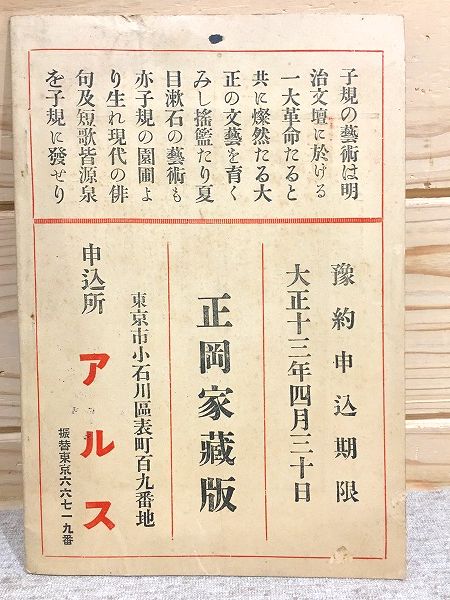 子規の藝術は明
治文壇に於ける
一大革命たると
共に燦然たる大
正の文藝を育く
みし搖籃たり夏
目漱石の藝術も
亦子規の園圃よ
り生れ現代の俳
句及短歌皆源泉
を子規に發せり
豫約申込期限
大正十三年四月三十日
正岡家藏版
東京市小石川區表町百九番地
申込所 アルス
振替東京六六七一九番